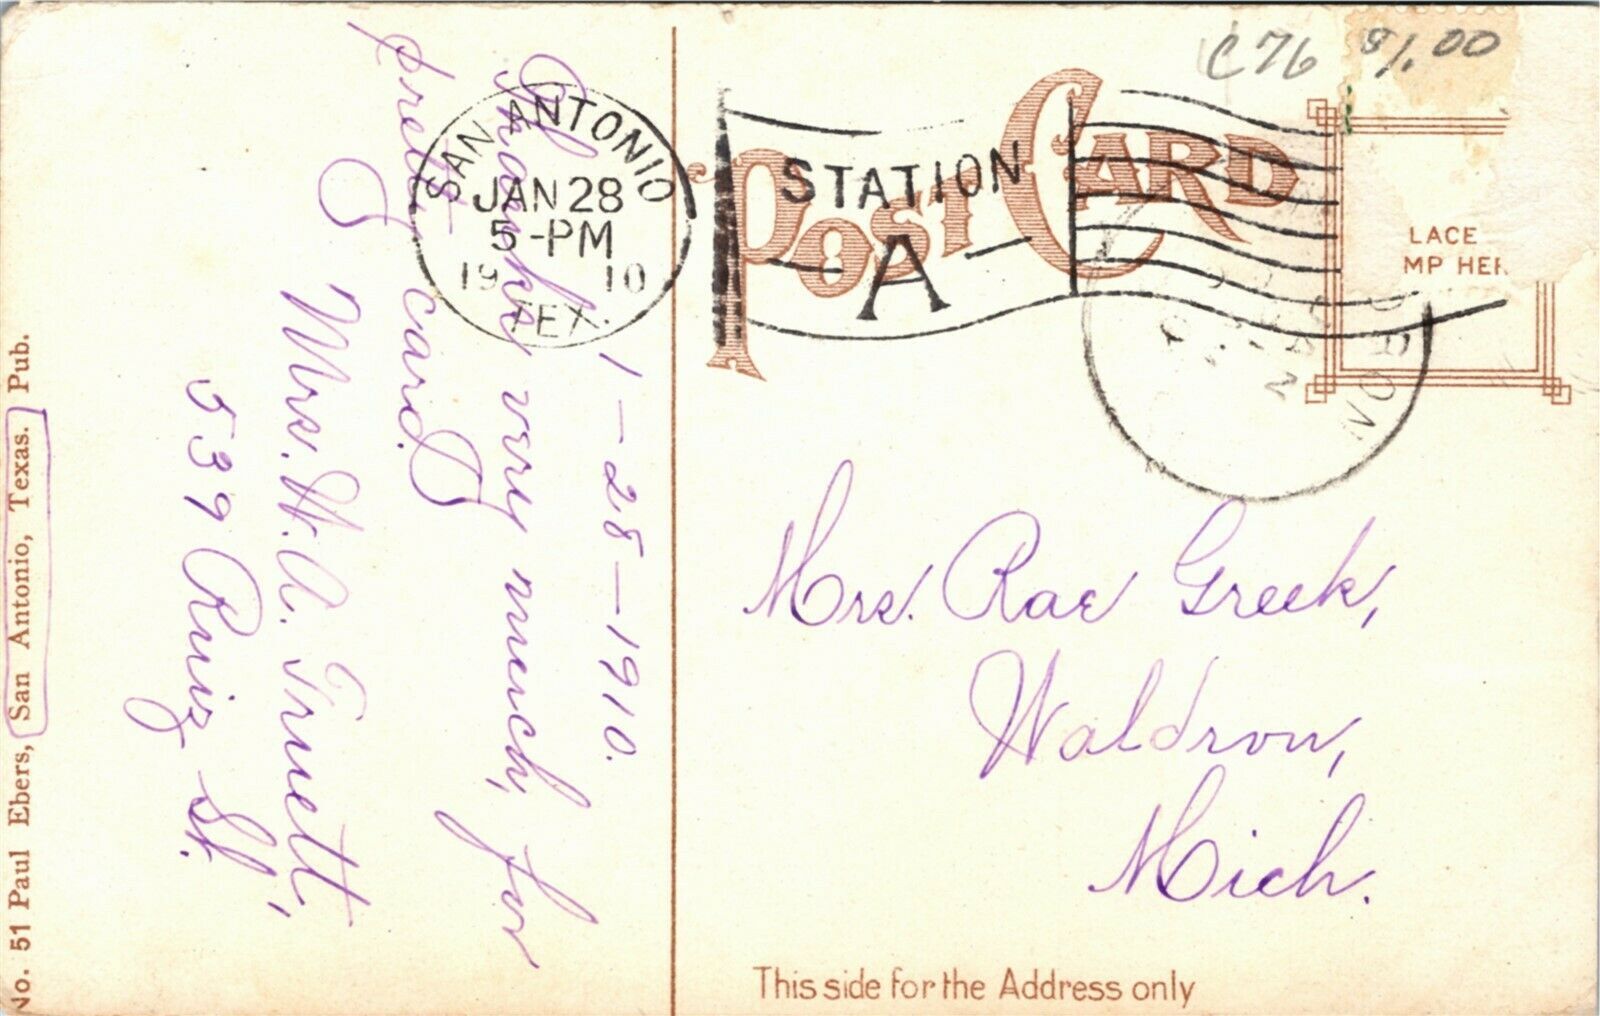 C76 $1.00
POST CARD
SAN ANTONIO
JAN 28
5-PM
19 10
TEX.
STATION
A
LACE
MP HER
1-28-1910.
Thanks very much, for
pretty card.
Mrs. W. A. Truett,
539 Ruiz St.
Mrs. Rae Greek,
Waldron,
Mich.
This side for the Address only
No. 51 Paul Ebers, San Antonio, Texas. Pub.